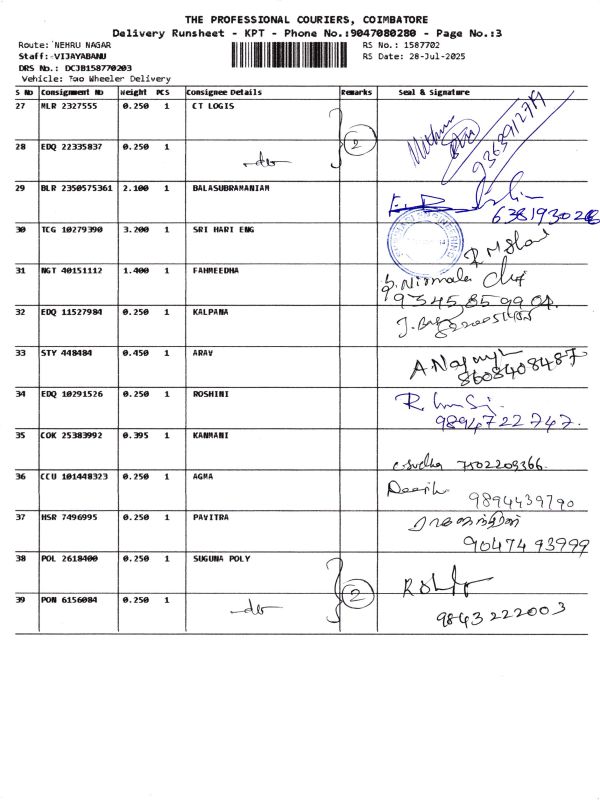 THE PROFESSIONAL COURIERS, COIMBATORE
Delivery Runsheet - KPT - Phone No.:9047080280 - Page No.:3
Route: NEHRU NAGAR RS No.: 1587702
Staff: VIJAYABANU RS Date: 28-Jul-2025
DRS No.: DCJB158770203
Vehicle: Two Wheeler Delivery
S NO Consignment NO Weight PCS Consignee Details Remarks Seal & Signature
27 MLR 2327555 0.250 1 CT LOGIS
28 EDQ 22335837 0.250 1 do 2
29 BLR 2350575361 2.100 1 BALASUBRAMANIAM
30 TCG 10279390 3.200 1 SRI HARI ENG
31 NGT 40151112 1.400 1 FAHMEEDHA P. Nirmala
93458 59904
32 EDQ 11527984 0.250 1 KALPANA
33 STY 448484 0.450 1 ARAV
8608408487
34 EDQ 10291526 0.250 1 ROSHINI
9894722747.
35 COK 25383992 0.395 1 KANMANI
c.sudha 7502209366.
36 CCU 101448323 0.250 1 AGMA
9894439790
37 HSR 7496995 0.250 1 PAVITRA
90474 93999
38 POL 2618400 0.250 1 SUGUNA POLY
39 PON 6156084 0.250 1 do 2
9843222003